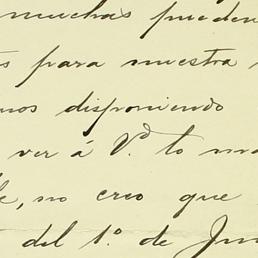 muchas pueden
para nuestra
mos disponiendo
ver á V.d lo
, no creo que
del 1.º de Jun